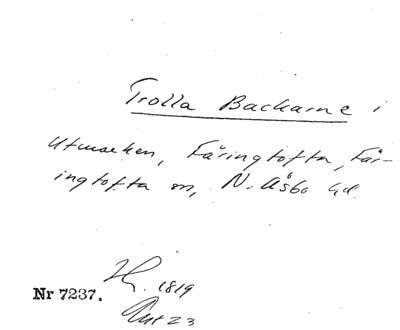 Trolla Backarne i
Utmarken, Färingtofta, Fär-
ingtofta sn, N. Åsbo hd.
1819
Nr 7237.
Akt 23